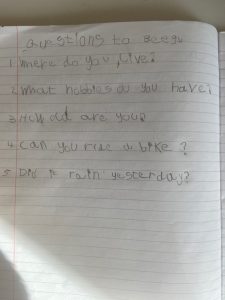 Questions to Beegu
1. Where do you live?
2. What hobbies do you have?
3. How old are you?
4. Can you ride a bike?
5. Did it rain yesterday?